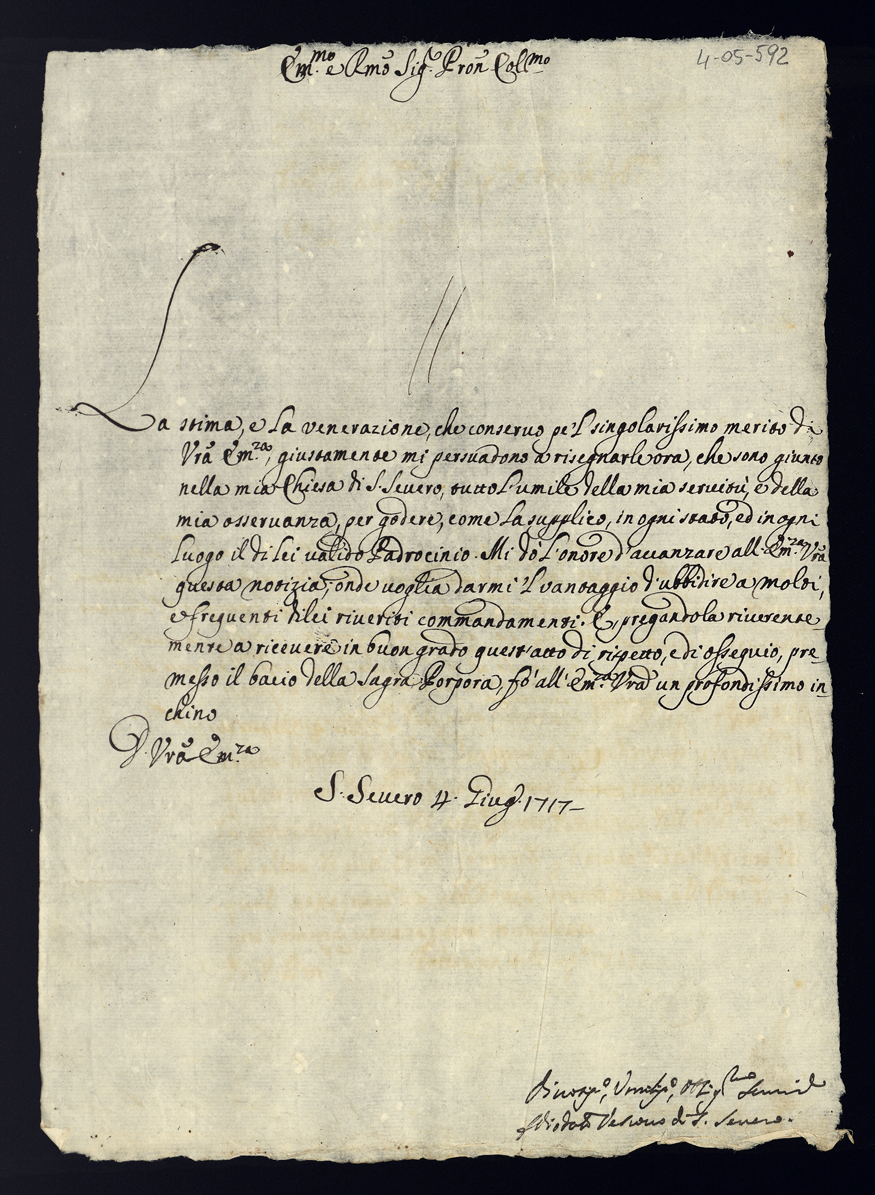 4-05-592
Em.mo e Rmo Sig.r Pron Coll.mo
La stima, e la venerazione, che conservo pe'l singolarissimo merito di
Vrã Em.za, giustamente mi persuadono a risegnarle ora, che sono giunto
nella mia Chiesa di S. Severo, tutto l'umile della mia servitù, e della
mia osservanza, per godere, come la supplico, in ogni stato, ed in ogni
luogo il di lei valido Padrocinio. Mi dò l'onore d'avanzare all'Em.za Vrã
questa notizia, onde voglia darmi 'l vantaggio d'ubbidire a molti,
e frequenti di lei riveriti commandamenti. E, pregandola riverente-
mente a ricevere in buon grado quest'atto di rispetto, e di ossequio, pre-
messo il bacio della Sagra Porpora, fò all'Em.za Vrã un profondissimo in-
chino
D. Vrã Em.za
S. Severo 4. Giug.o 1717-
Divotis.o, Umilis.o, Obblig.mo
Vescovo di S. Severo.